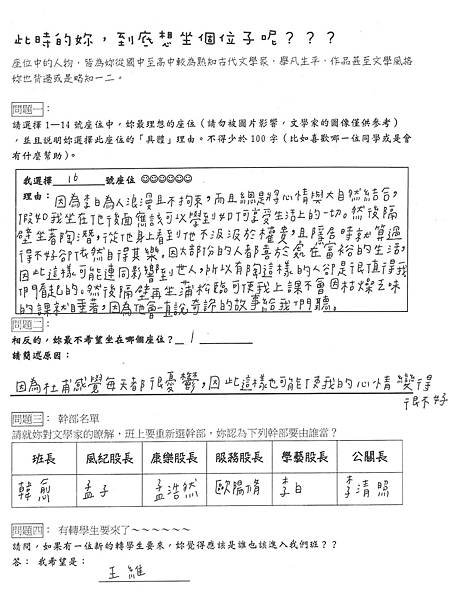 此時的妳，到底想坐個位子呢？？？
座位中的人物，皆為妳從國中至高中較為熟知古代文學家，舉凡生平、作品甚至文學風格
妳也皆通或是略知一二。
問題一：
請選擇 1—14 號座位中，妳最理想的座位（請勿被圖片影響，文學家的圖像僅供參考）
，並且說明妳選擇此座位的「具體」理由。不得少於 100 字（比如喜歡哪一位同學或是會
有什麼幫助）。
我選擇 16 號座位 ☺☺☺☺☺☺
理由：因為李白為人浪漫且不拘束，而且總是將心情與大自然結合，
假如我坐在他後面應該可以學到如何享受生活上的一切。然後隔
壁坐著陶潛，從他身上看到他不汲汲於權貴，且隱居時就算過
得不好卻依然自得其樂。因大部份的人都喜於處在富裕的生活，
因此這樣可能連同影響到世人，所以有陶這樣的人卻是很值得我
們看起的。然後隔壁再坐蒲松齡可使我上課不會因枯燥乏味
的課就睡著，因為他會一直說奇許的故事給我們聽。
問題二：
相反的，妳最不希望坐在哪個座位？ 1
請簡述原因：
因為杜甫感覺每天都很憂鬱，因此這樣也可能使我的心情變得
很不好
問題三： 幹部名單
請就妳對文學家的瞭解，班上要重新選幹部，妳認為下列幹部要由誰當？
班長 風紀股長 康樂股長 服務股長 學藝股長 公關長
韓愈 孟子 孟浩然 歐陽脩 李白 李清照
問題四： 有轉學生要來了～～～～～～
請問，如果有一位新的轉學生要來，妳覺得應該是誰也該進入我們班？？
答： 我希望是： 王維